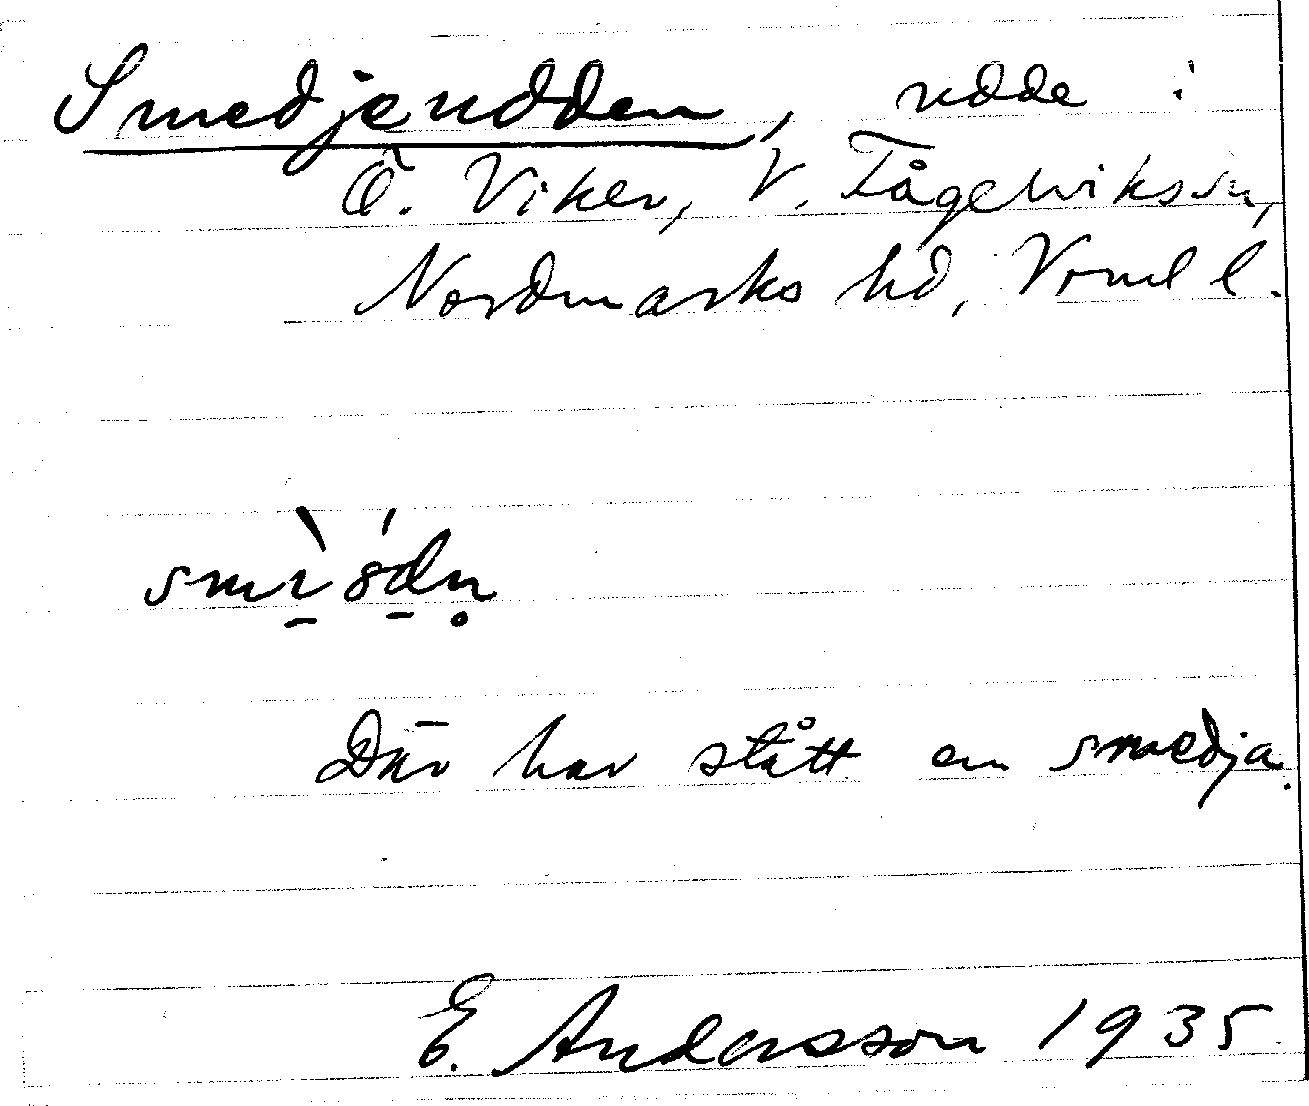 Smedjeudden, udde i
Ö. Viker, V. Fågelviks sn,
Nordmarks hd, Vrml l.
Där har stått en smedja.
E. Andersson 1935